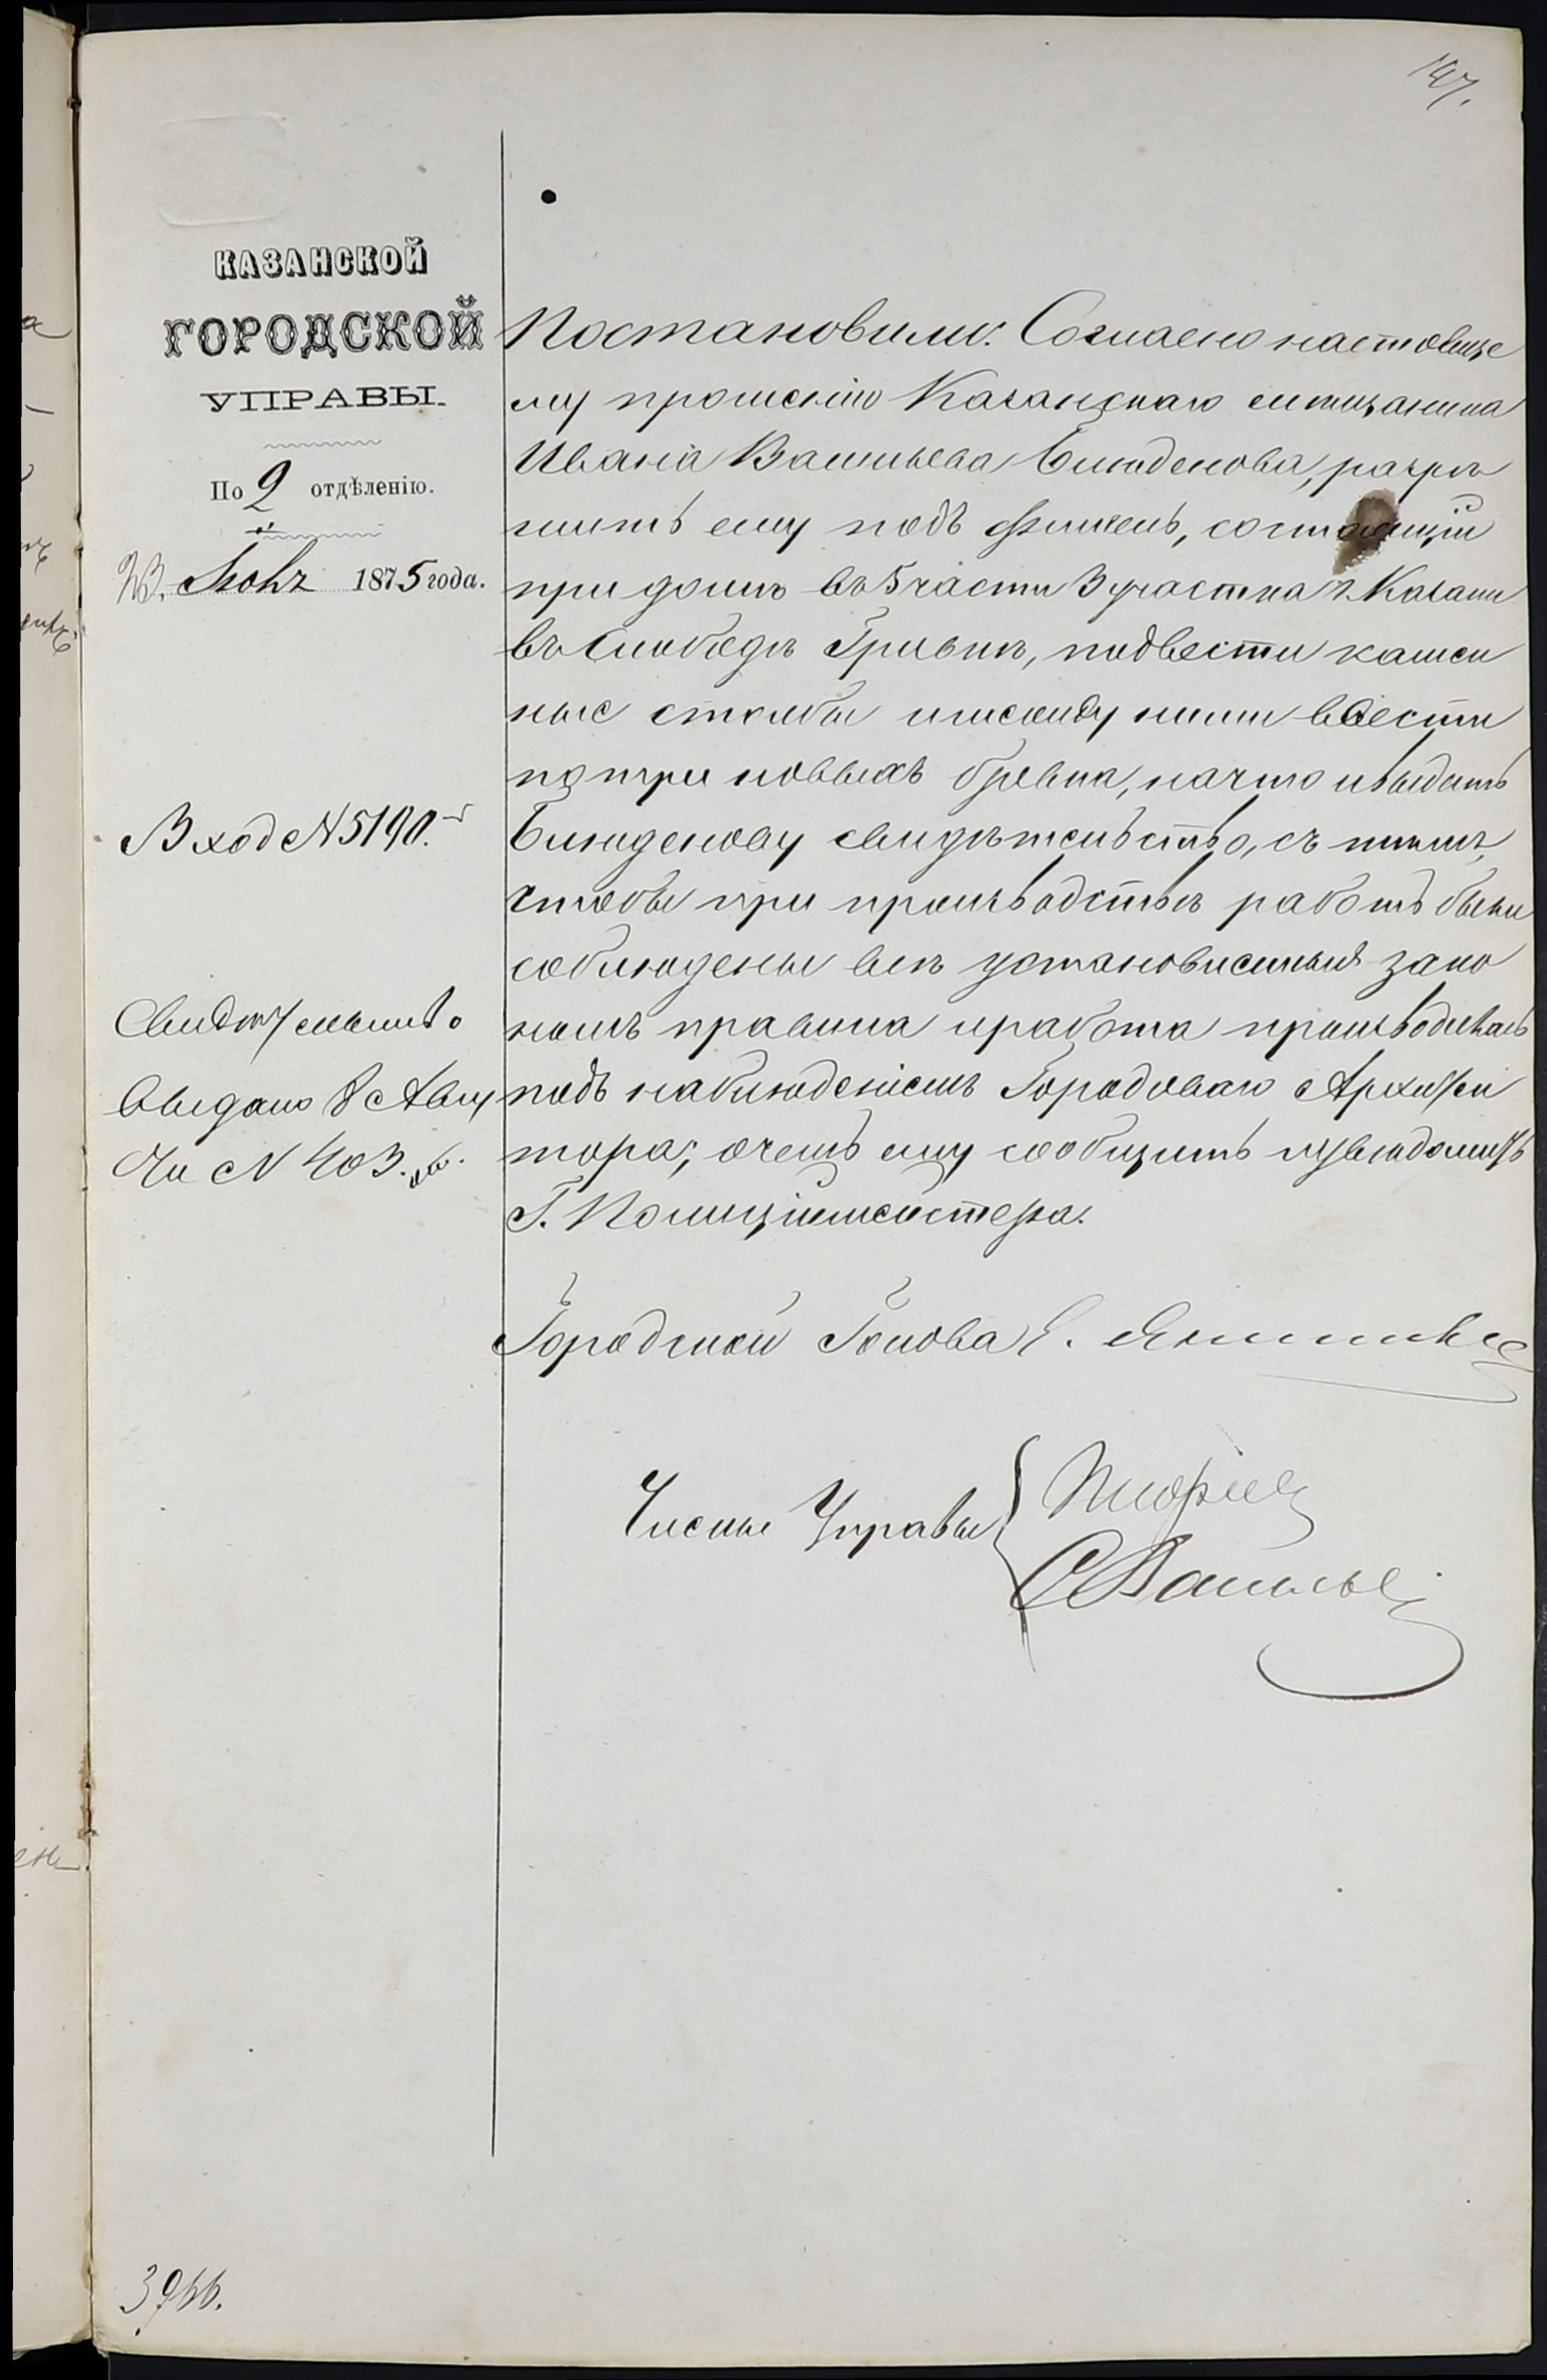 147.
КАЗАНСКОЙ
ГОРОДСКОЙ
УПРАВЫ.
По 2 отдѣленію.
23. Іюля 1875 года.
Вход № 5190.
Свидѣтельство
выдано 8 Авгу
№ 403.
Постановили: Согласно настояще
му прошенію Казанскаго мѣщанина
Ивана Васильева Блюденова, разрѣ
шить ему подъ флигель, состоящій
при домѣ въ 5 части 3 участка г. Казани
въ Слободѣ Гривкѣ, подвести камен
ные столбы и между ними ввести
по три новыхъ бревна, на что и выдать
Блюденову свидѣтельство, съ тѣмъ,
чтобы при производствѣ работъ были
соблюдены всѣ установленныя зако
номъ правила и работа производилась
подъ наблюденіемъ Городоваго Архитек
тора; о чемъ ему сообщить и увѣдомить
Г. Полиціймейстера.
Городской Голова Е.
Члены Управы
С Васильев
3966.